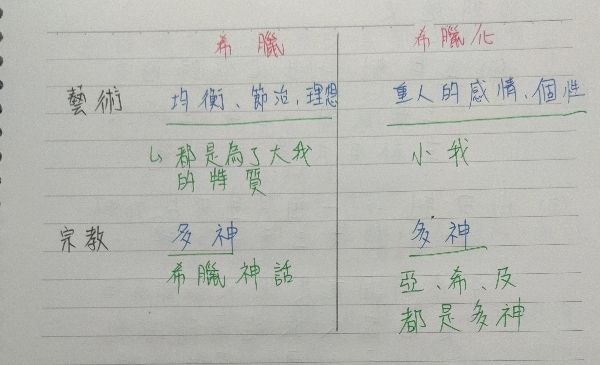 希臘 希臘化
藝術 均衡、節治、理想 重人的感情、個性
↳ 都是為了大我 小我
的特質
宗教 多神 多神
希臘神話 亞、希、及
都是多神